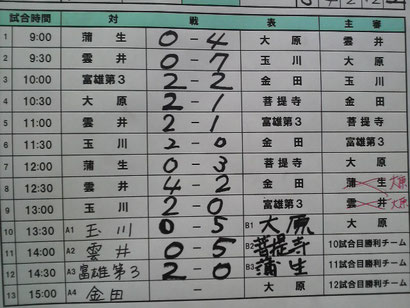 試合時間 対 戦 表 主 審
1 9:00 蒲 生 0 - 4 大 原 雲 井
2 9:30 雲 井 0 - 7 玉 川 大 原
3 10:00 富雄第3 2 - 2 金 田 玉 川
4 10:30 大 原 2 - 1 菩提寺 金 田
5 11:00 雲 井 2 - 1 富雄第3 菩提寺
6 11:30 玉 川 2 - 0 金 田 富雄第3
7 12:00 蒲 生 0 - 3 菩提寺 大 原
8 12:30 雲 井 4 - 2 金 田 蒲 生 大原
9 13:00 玉 川 2 - 0 富雄第3 雲 井 大原
10 13:30 A1 玉 川 0 - 5 B1 大 原 大 原
11 14:00 A2 雲 井 0 - 5 B2 菩提寺 10試合目勝利チーム
12 14:30 A3 富雄第3 2 - 0 B3 蒲 生 11試合目勝利チーム
13 15:00 A4 金 田 - - 12試合目勝利チーム